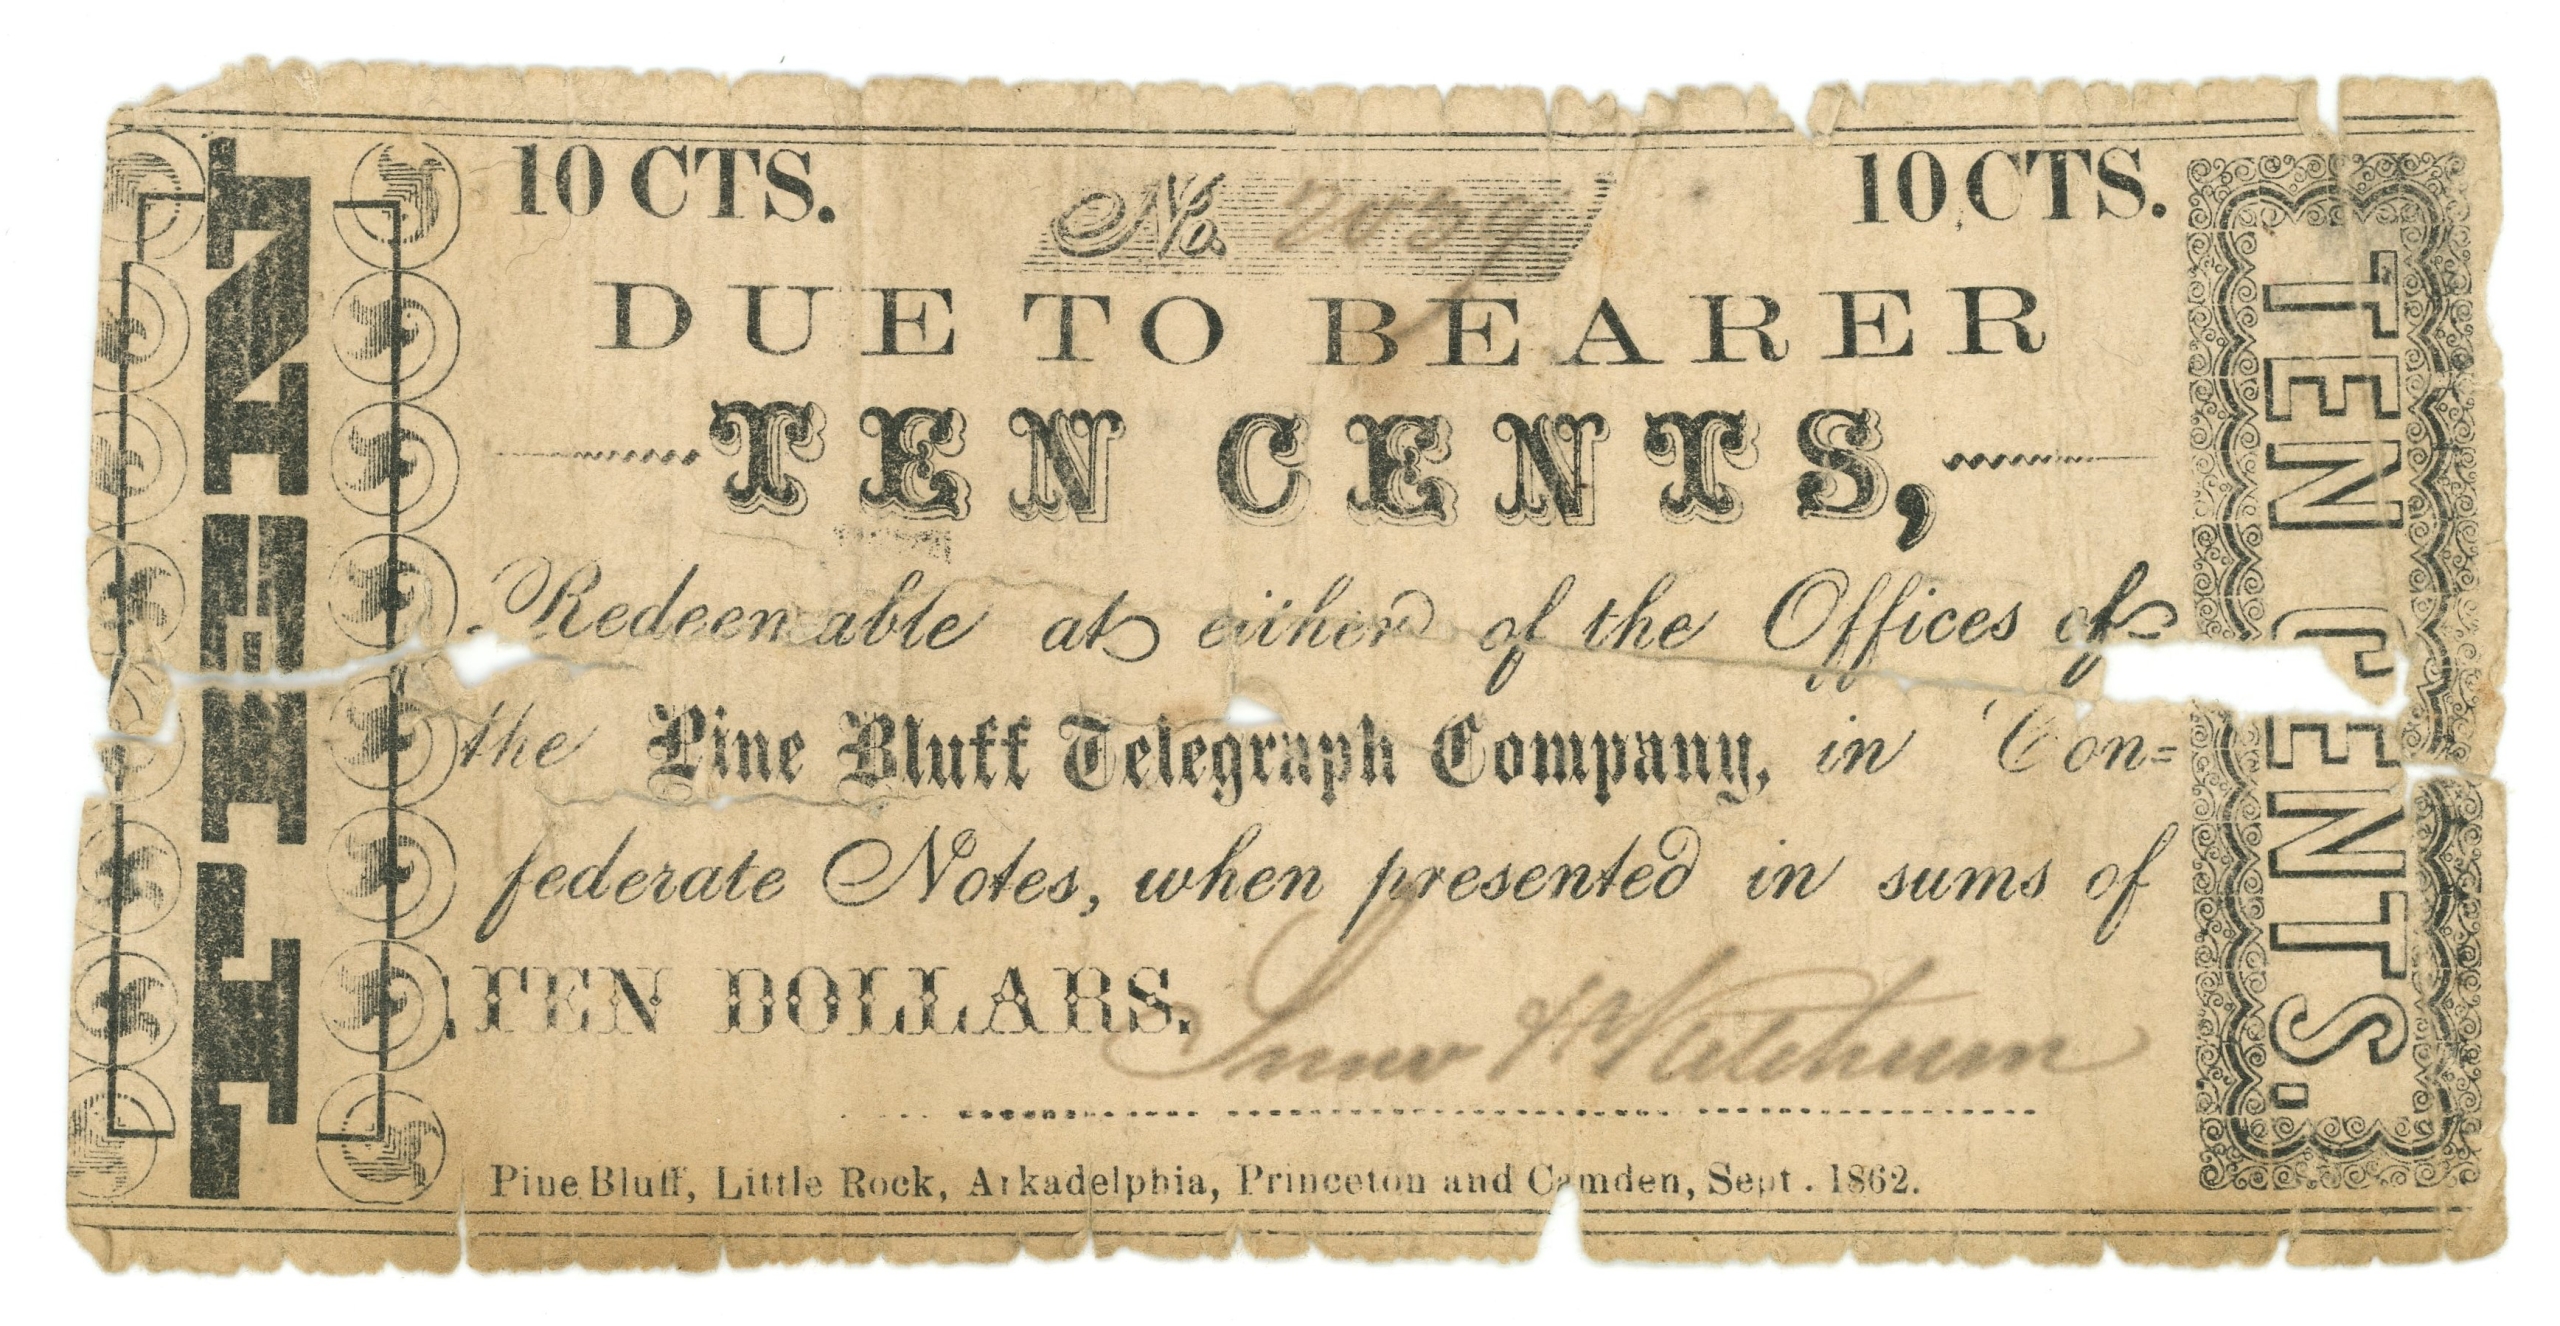 10 CTS.
No. 2059
10 CTS.
DUE TO BEARER
TEN CENTS,
Redeemable at either of the Offices of
the Pine Bluff Telegraph Company, in Con=
federate Notes, when presented in sums of
TEN DOLLARS.
Pine Bluff, Little Rock, Arkadelphia, Princeton and Camden, Sept. 1862.
TEN
TEN CENTS.